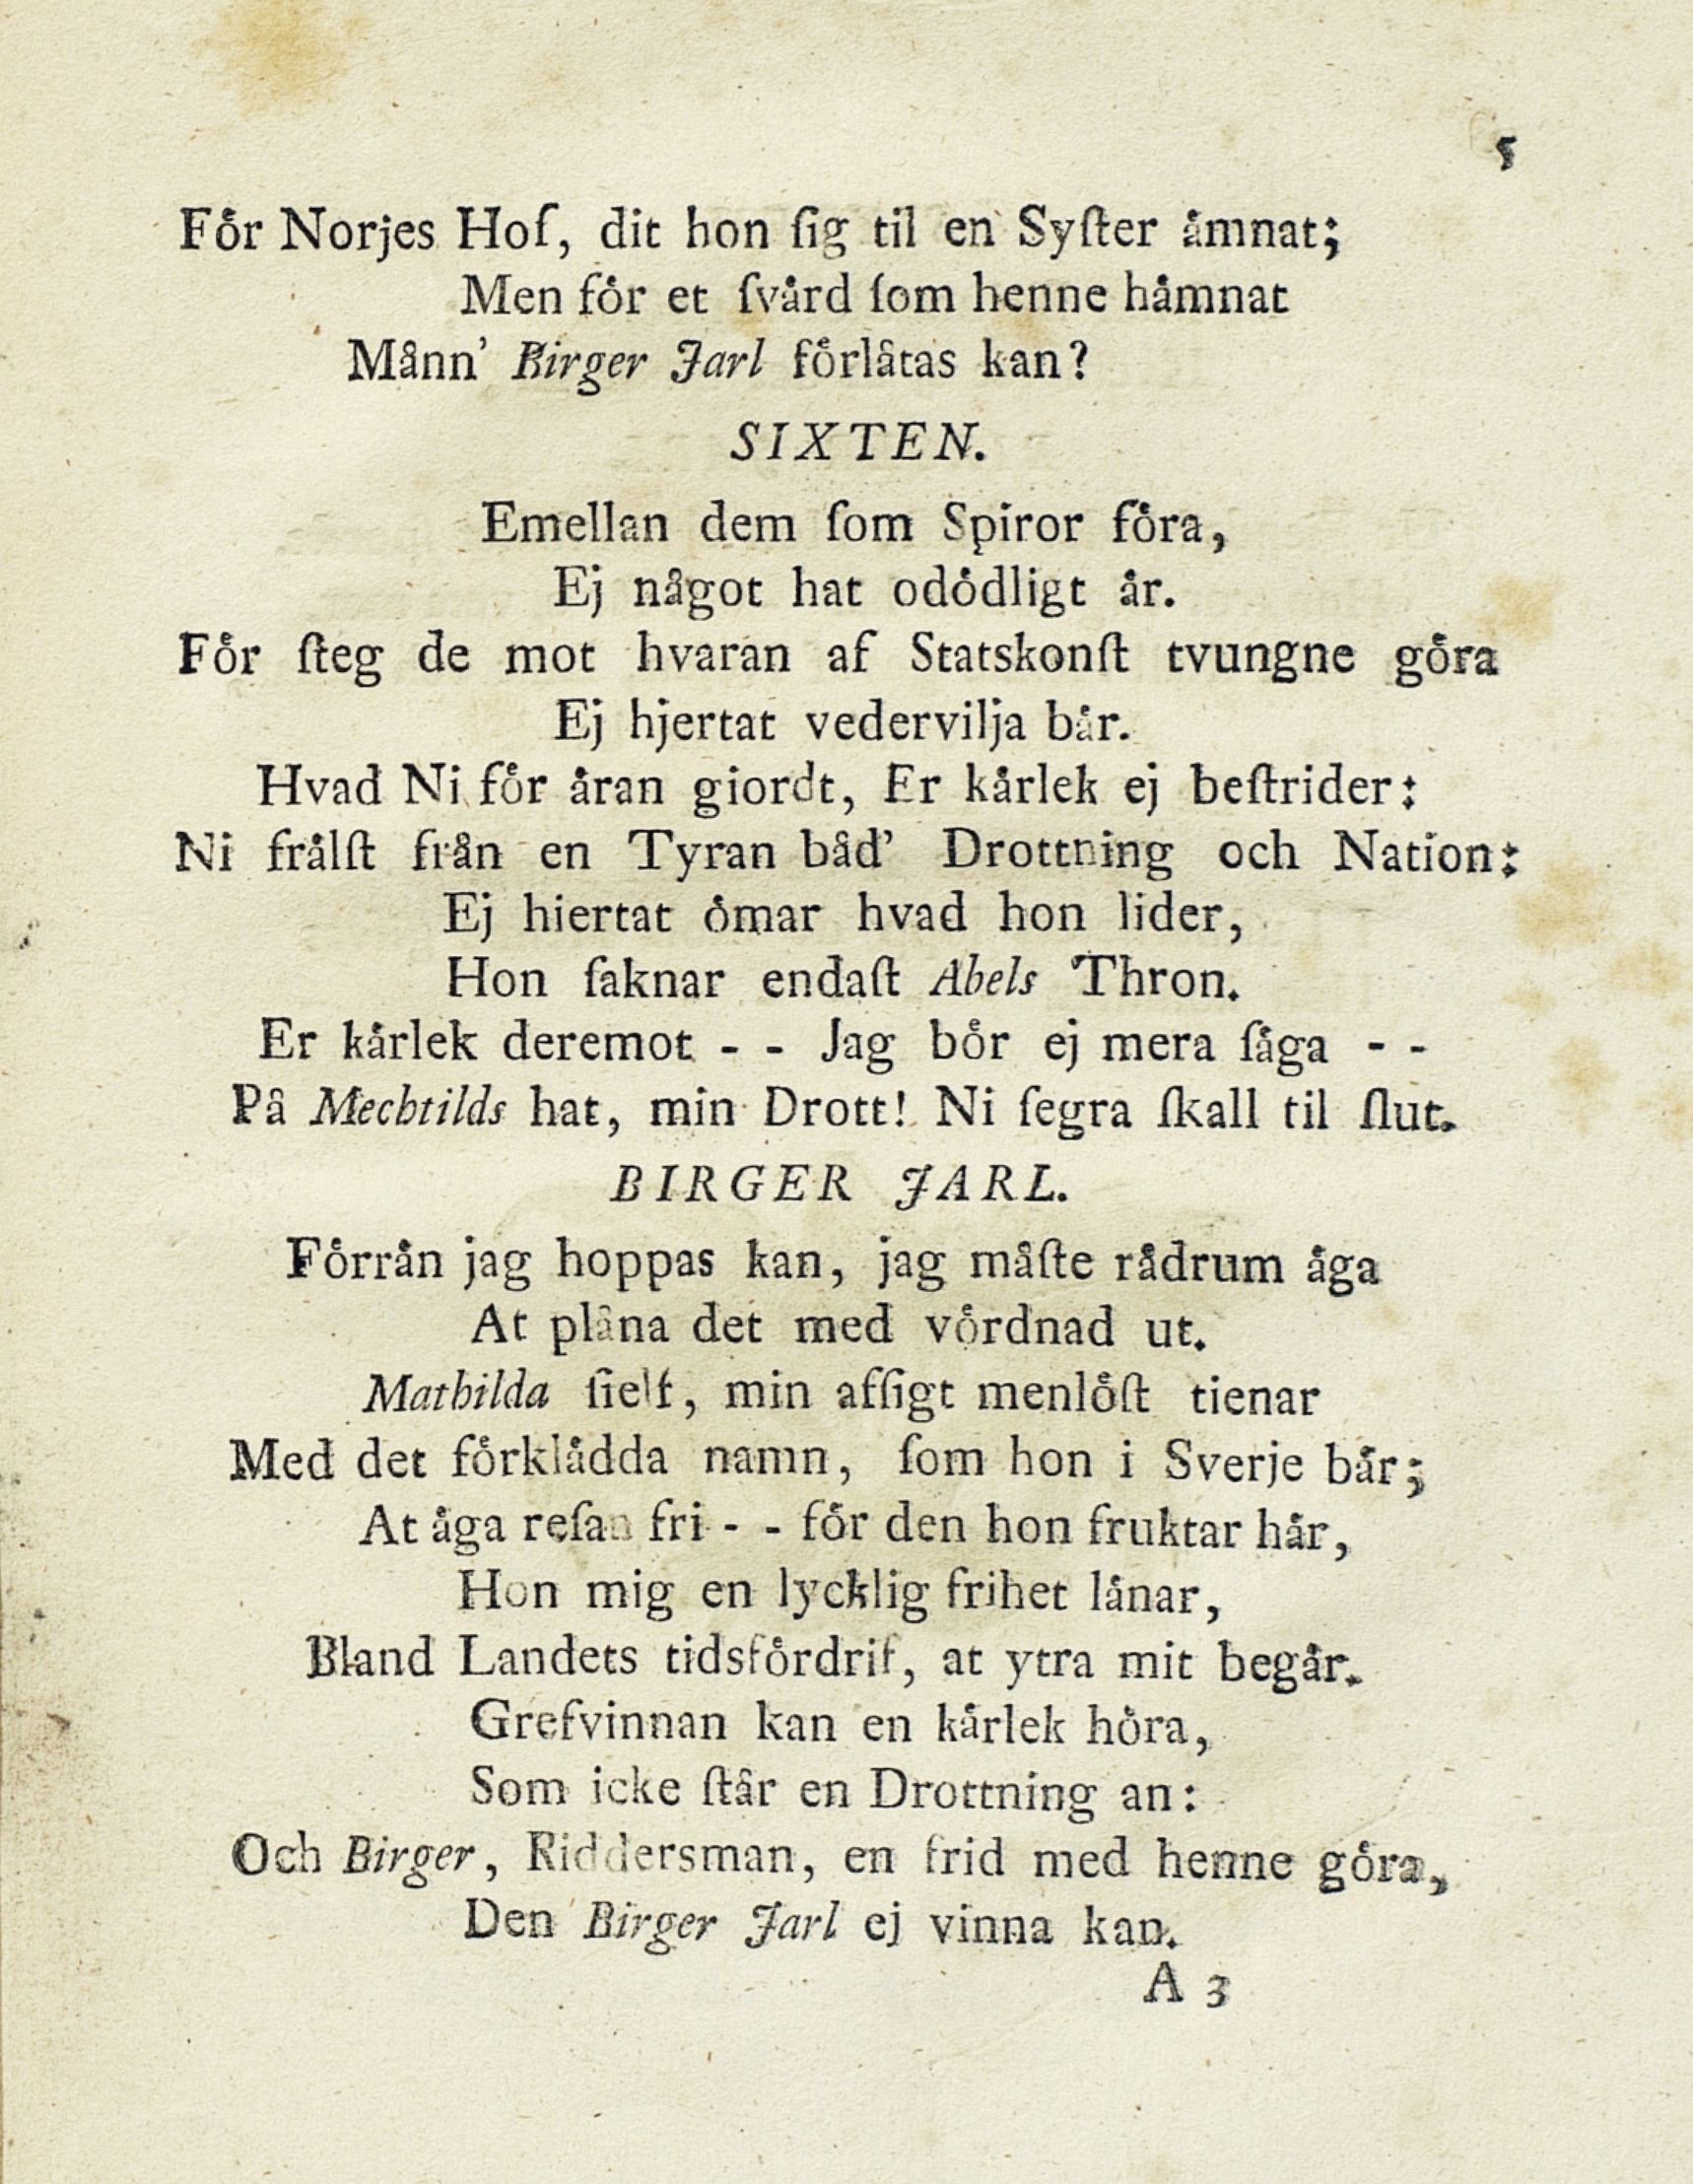 5
För Norjes Hof, dit hon ſig til en Syſter ämnat;
Men för et ſvärd ſom henne hämnat
Månn’ Birger Jarl förlåtas kan?
SIXTEN.
Emellan dem ſom Spiror föra,
Ej något hat odödligt är.
För ſteg de mot hvaran af Statskonſt tvungne göra
Ej hjertat vedervilja bär.
Hvad Ni för äran giordt, Er kärlek ej beſtrider:
Ni frälſt från en Tyran båd’ Drottning och Nation:
Ej hiertat ömar hvad hon lider,
Hon ſaknar endaſt Abels Thron.
Er kärlek deremot - - Jag bör ej mera ſäga - -
På Mechtilds hat, min Drott! Ni ſegra ſkall til ſlut.
BIRGER JARL.
Förrän jag hoppas kan, jag måſte rådrum äga
At plåna det med vördnad ut.
Mathilda ſielf, min afſigt menlöſt tienar
Med det förklädda namn, ſom hon i Sverje bär;
At äga reſan fri - - för den hon fruktar här,
Hon mig en lycklig frihet länar,
Bland Landets tidsfördrif, at ytra mit begär.
Grefvinnan kan en kärlek höra,
Som icke ſtår en Drottning an:
Och Birger, Riddersman, en frid med henne göra,
Den Birger Jarl ej vinna kan.
A 3